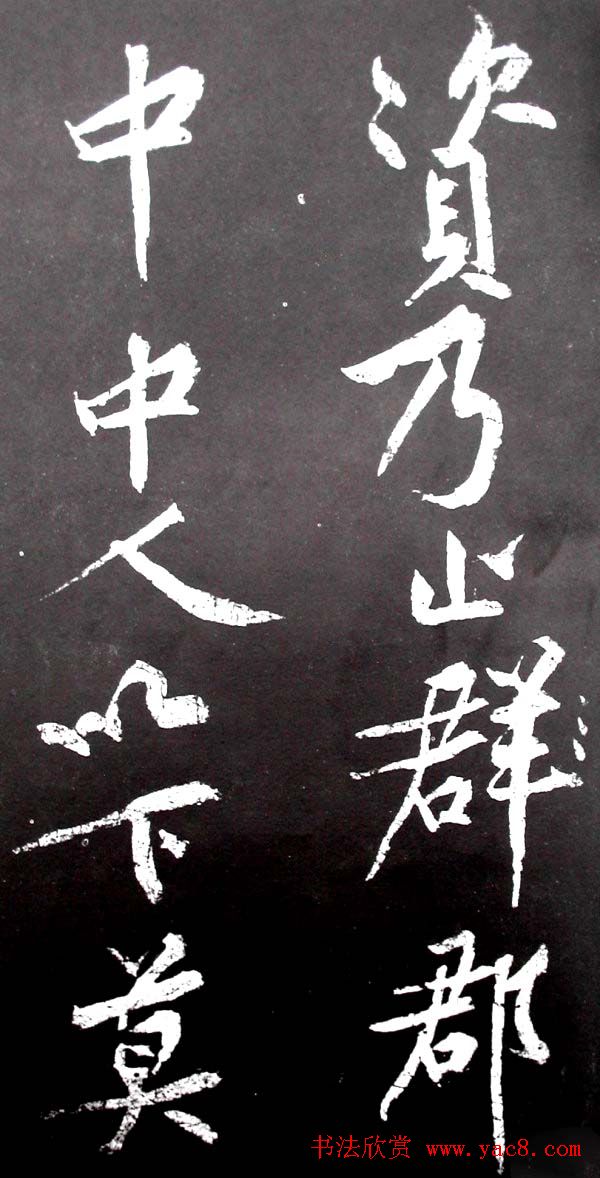 資乃止群郡
中中人以下莫
书法欣赏 www.yac8.com